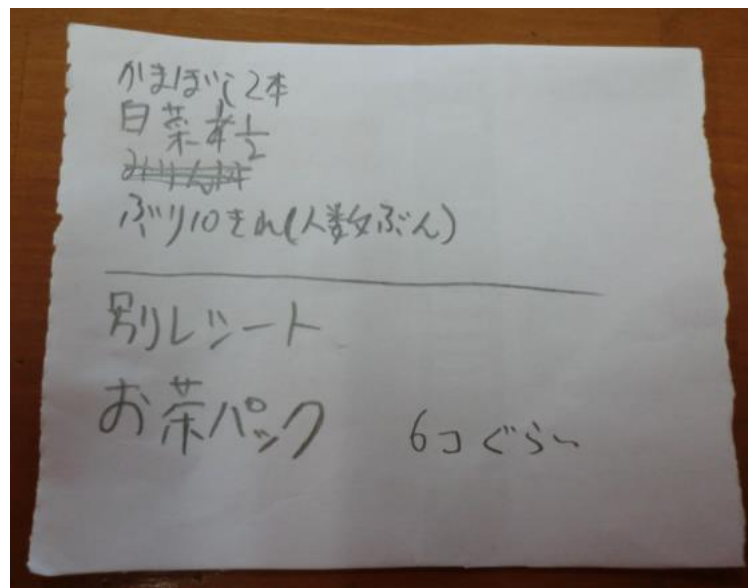 かまぼこ2本
白菜 1/2
ぶり10きれ(人数ぶん)
別レシート
お茶パック 6コぐらい